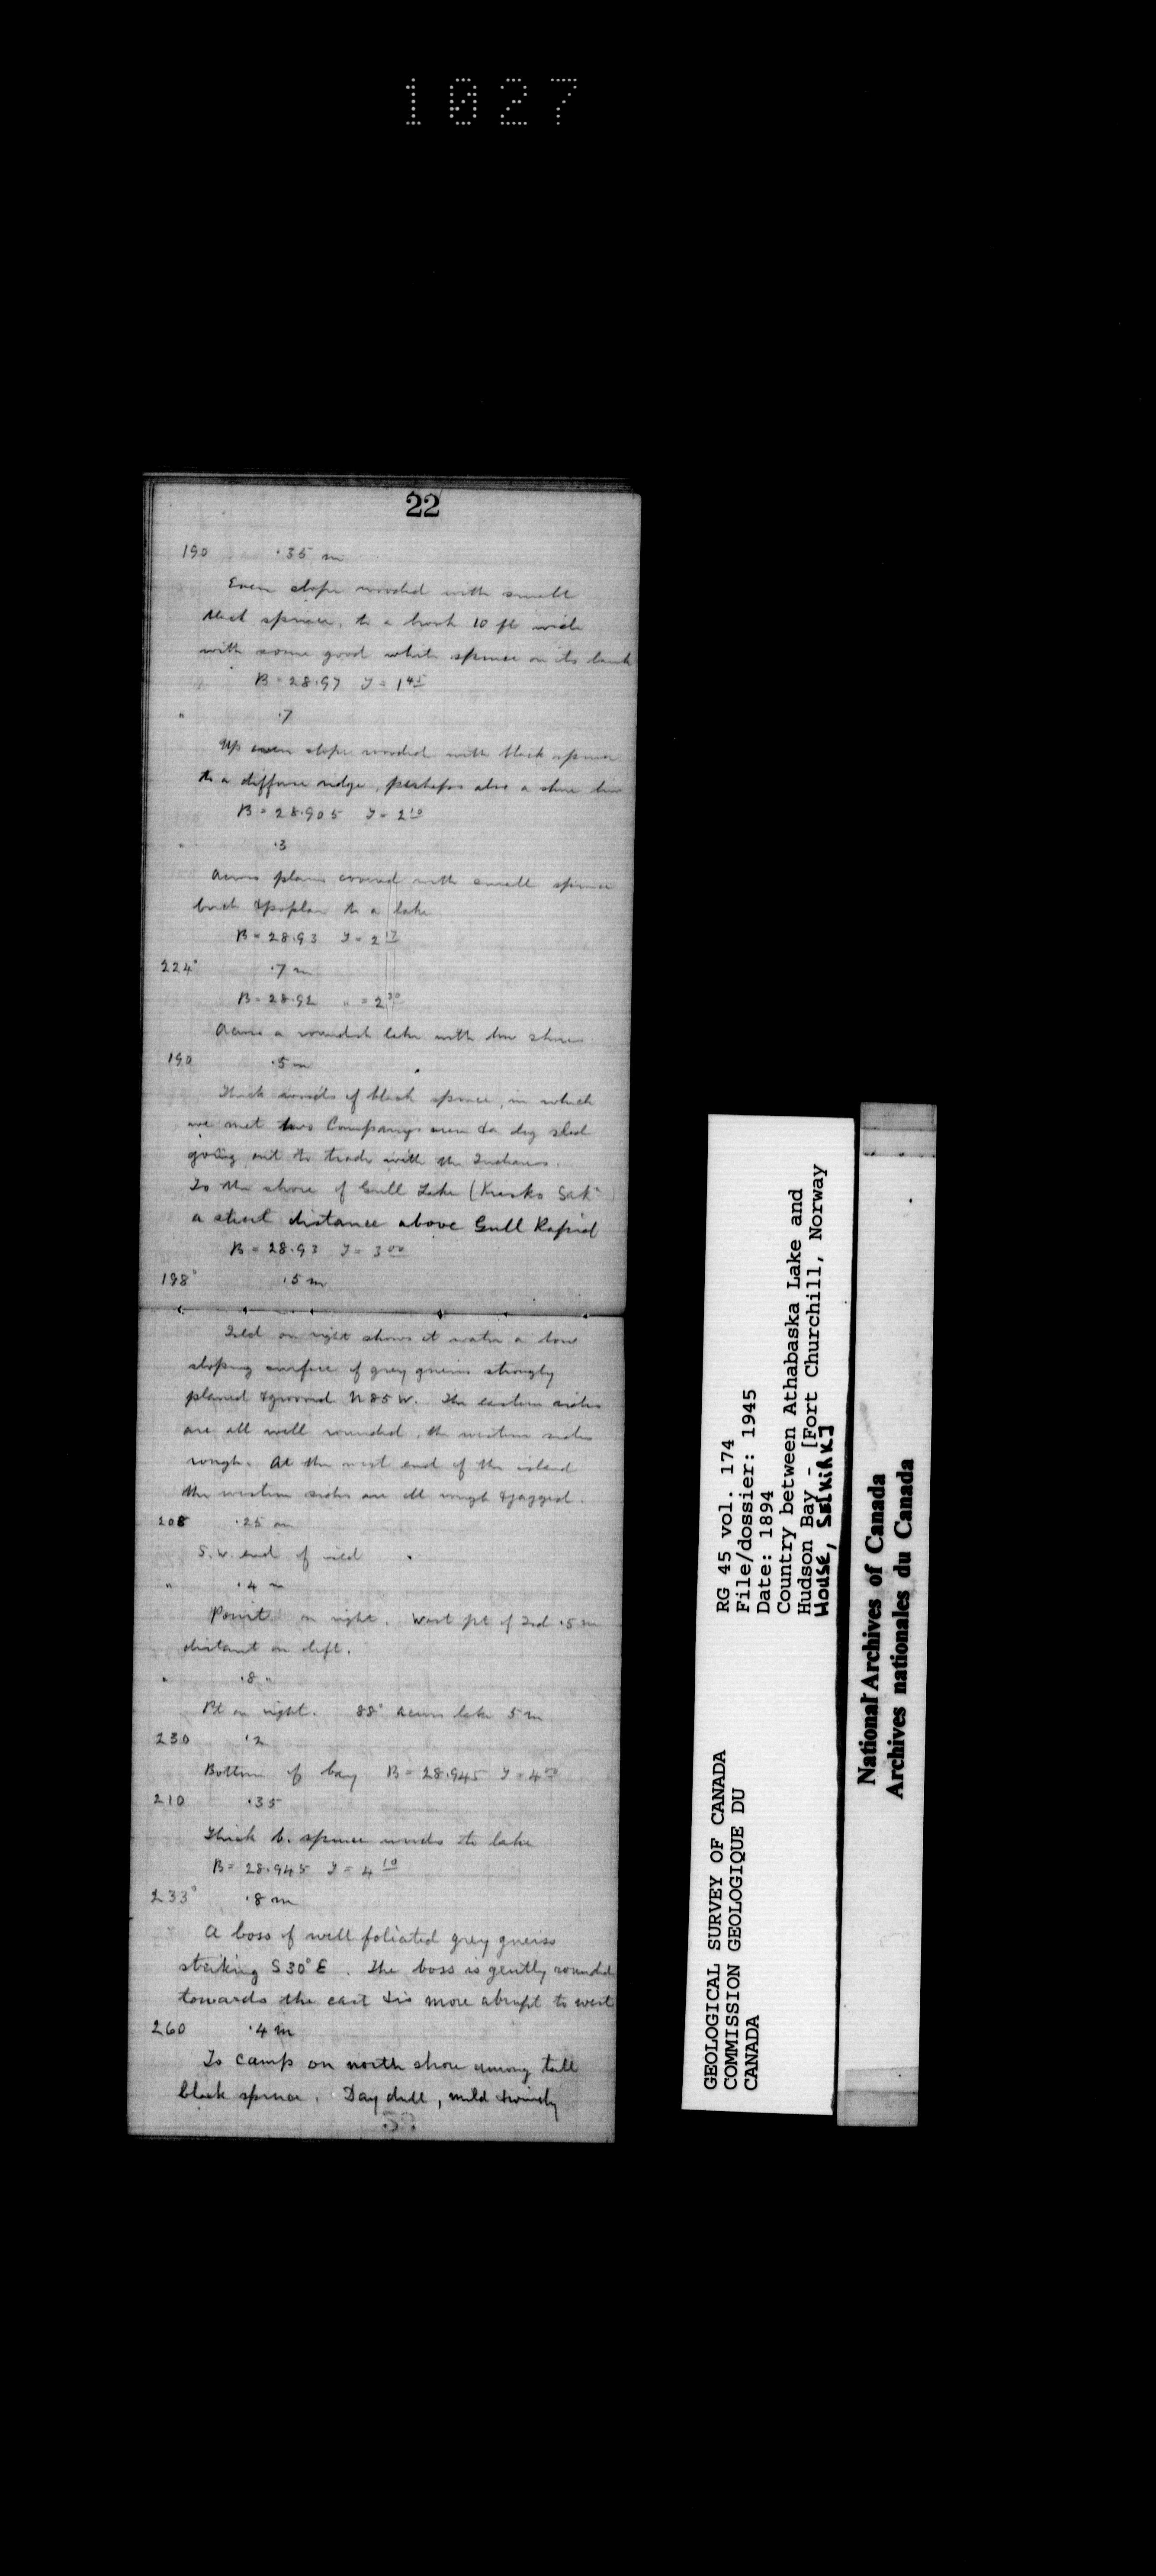 1027
22
190 .35 m
Even slope wooded with small
black spruce, to a brook 10 ft wide
with some good white spruce on its bank
B = 28.97 T = 1 45
" .7
Up even slope wooded with black spruce
to a diffuse ridge, perhaps also a shore line
B = 28.905 T = 2 10
" .3
Across plain covered with small spruce
birch & poplar to a lake
B = 28.93 T = 2
224° .7 m
B = 28.92 " = 2 30
Across a rounded lake with low shores
190 .5 m
Thick woods of black spruce, in which
we met two Companys men & a dog sled
going out to trade with the Indians.
To the shore of Gull Lake (Kiasko Sak
a short distance above Gull Rapid
B = 28.93 T = 3 00
198° .5 m
Isld on right shows at water a low
sloping surface of grey gneiss strongly
planed & grooved N 85 W. The eastern sides
are all well rounded, the western sides
rough. At the west end of the island
the western sides are all rough & jagged.
208 .25 m
S.W. end of isld
" .4 m
Point on right. West pt of Isd .5 m
distant on left.
" .8 "
Pt on right. 88° across lake 5 m
230 .2
Bottom of bay B = 28.945 T = 4
210 .35
Thick b. spruce woods to lake
B = 28.945 T = 4 10
233° .8 m
A boss of well foliated grey gneiss
striking S 30° E. The boss is gently rounded
towards the east & is more abrupt to west
260 .4 m
To camp on north shore among tall
black spruce. Day dull, mild & windy
GEOLOGICAL SURVEY OF CANADA
COMMISSION GEOLOGIQUE DU
CANADA
RG 45 vol. 174
File/dossier: 1945
Date: 1894
Country between Athabaska Lake and
Hudson Bay - [Fort Churchill, Norway
House, SELKIRK]
National Archives of Canada
Archives nationales du Canada